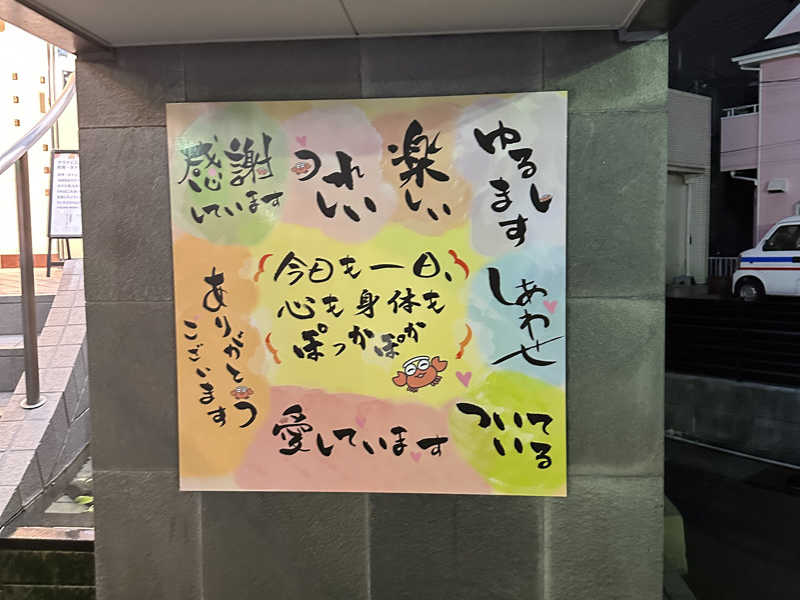 感謝
しています
うれ
しい
楽
しい
ゆるし
ます
今日も一日、
心も身体も
ぽっかぽか
ありがとう
ございます
しあわせ
愛しています
ついてる